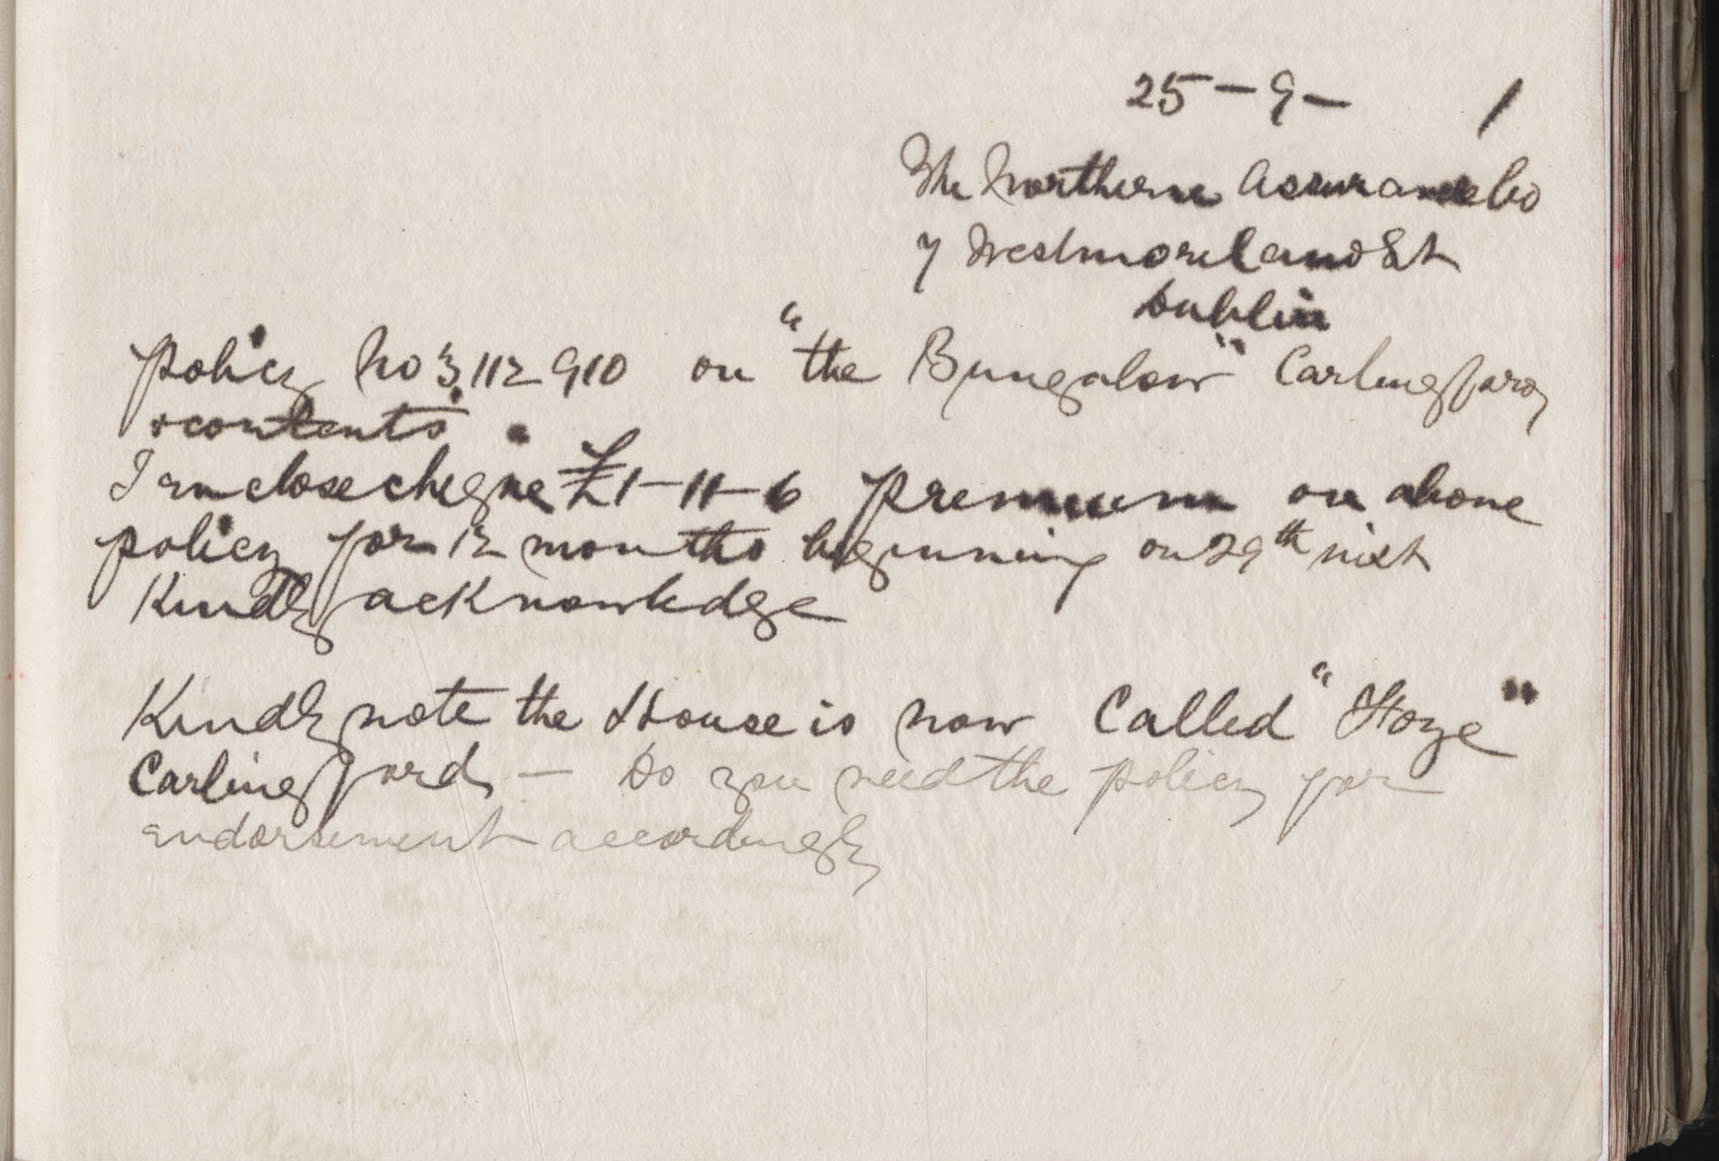 25 - 9 - 1
The Northern Assurance Co
7 Westmoreland St
Dublin
Policy No 3,112910 on "the Bungalow" Carlingford
& contents.
I enclose cheque £1-11-6 premium on above
policy for 12 months beginning on 29th inst
Kindly acknowledge
Kindly note the House is now Called " "
Carlingford - Do you need the policy for
endorsement accordingly